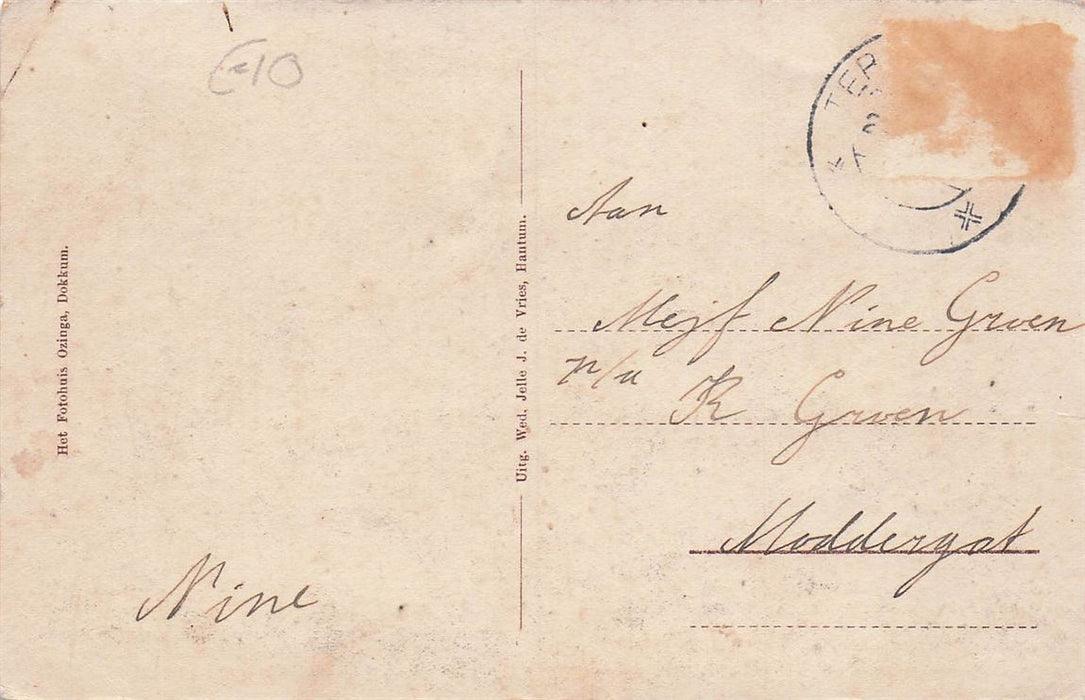 €10
TER
Het Fotohuis Ozinga, Dokkum.
Uitg. Wed. Jelle J. de Vries, Hantum.
Aan
Mejf Nine Groen
p/a K Groen
Moddergat
Nine